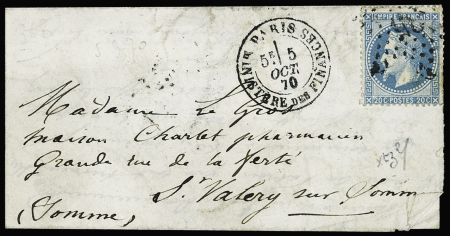 PARIS
MINISTÈRE DES FINANCES
5E 5
OCT
70
EMPIRE FRANÇAIS
20 C POSTES 20 C
Madame Le Gros
maison Charlet pharmacien
Grande rue de la Ferté
St Valery sur Somm
(Somme)